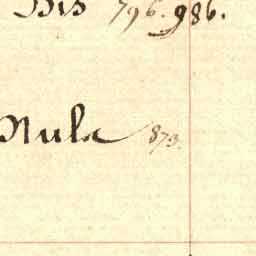 Bis 796. 986.
Nula 873.